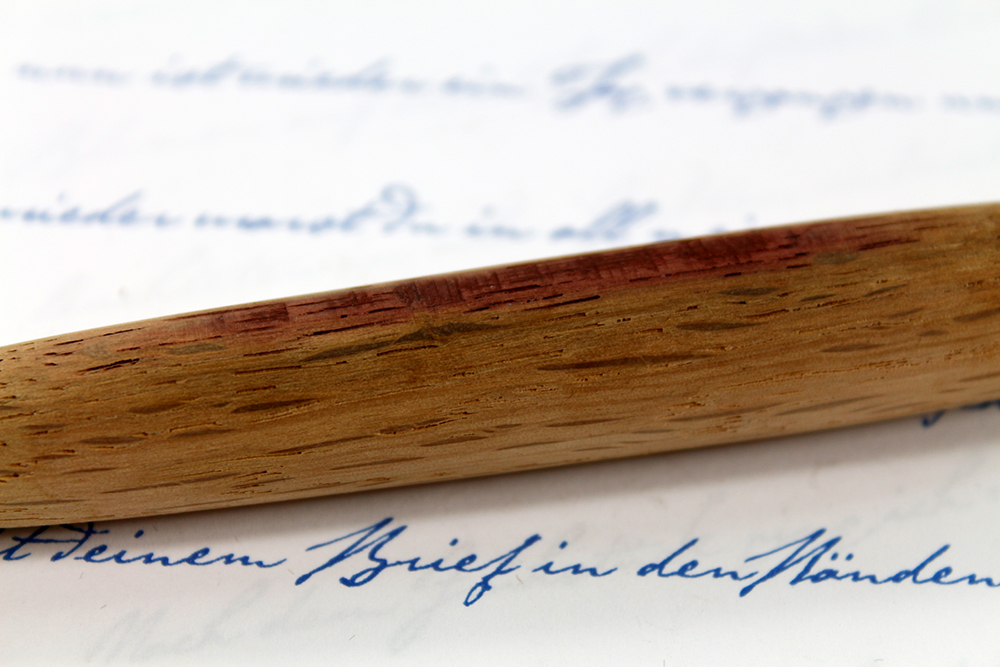 nun ist wieder ein Tag vergangen
wieder warst Du in all
t deinem Brief in den Händen